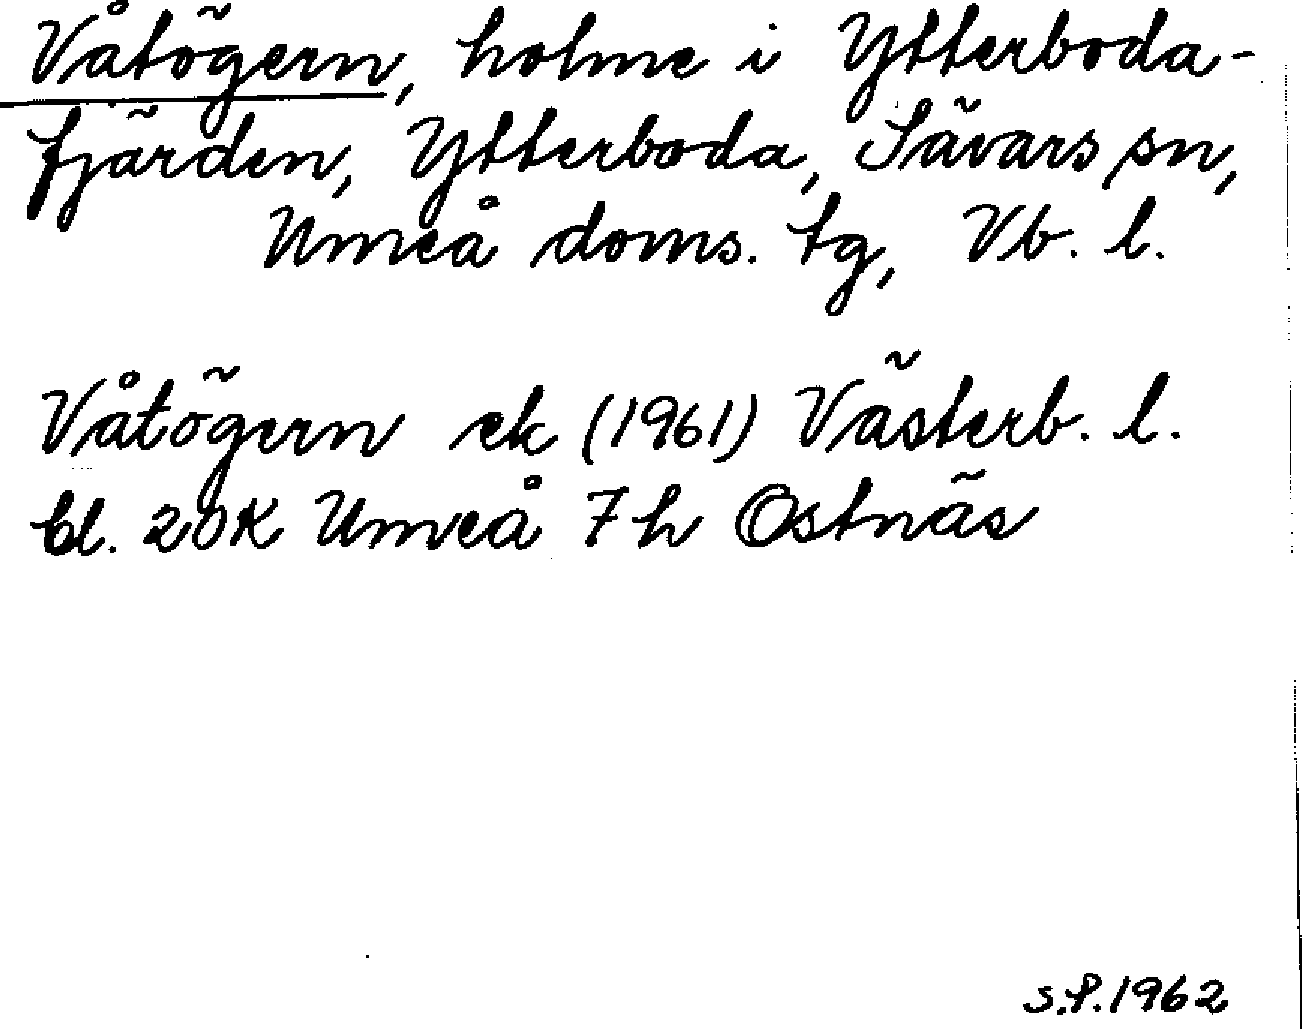 Våtögern, holme i Ytterboda-
fjärden, Ytterboda, Sävars sn,
Umeå doms. tg, Vb. l.
Våtögern ek (1961) Västerb. l.
bl. 20K Umeå 7h Ostnäs
S.P. 1962